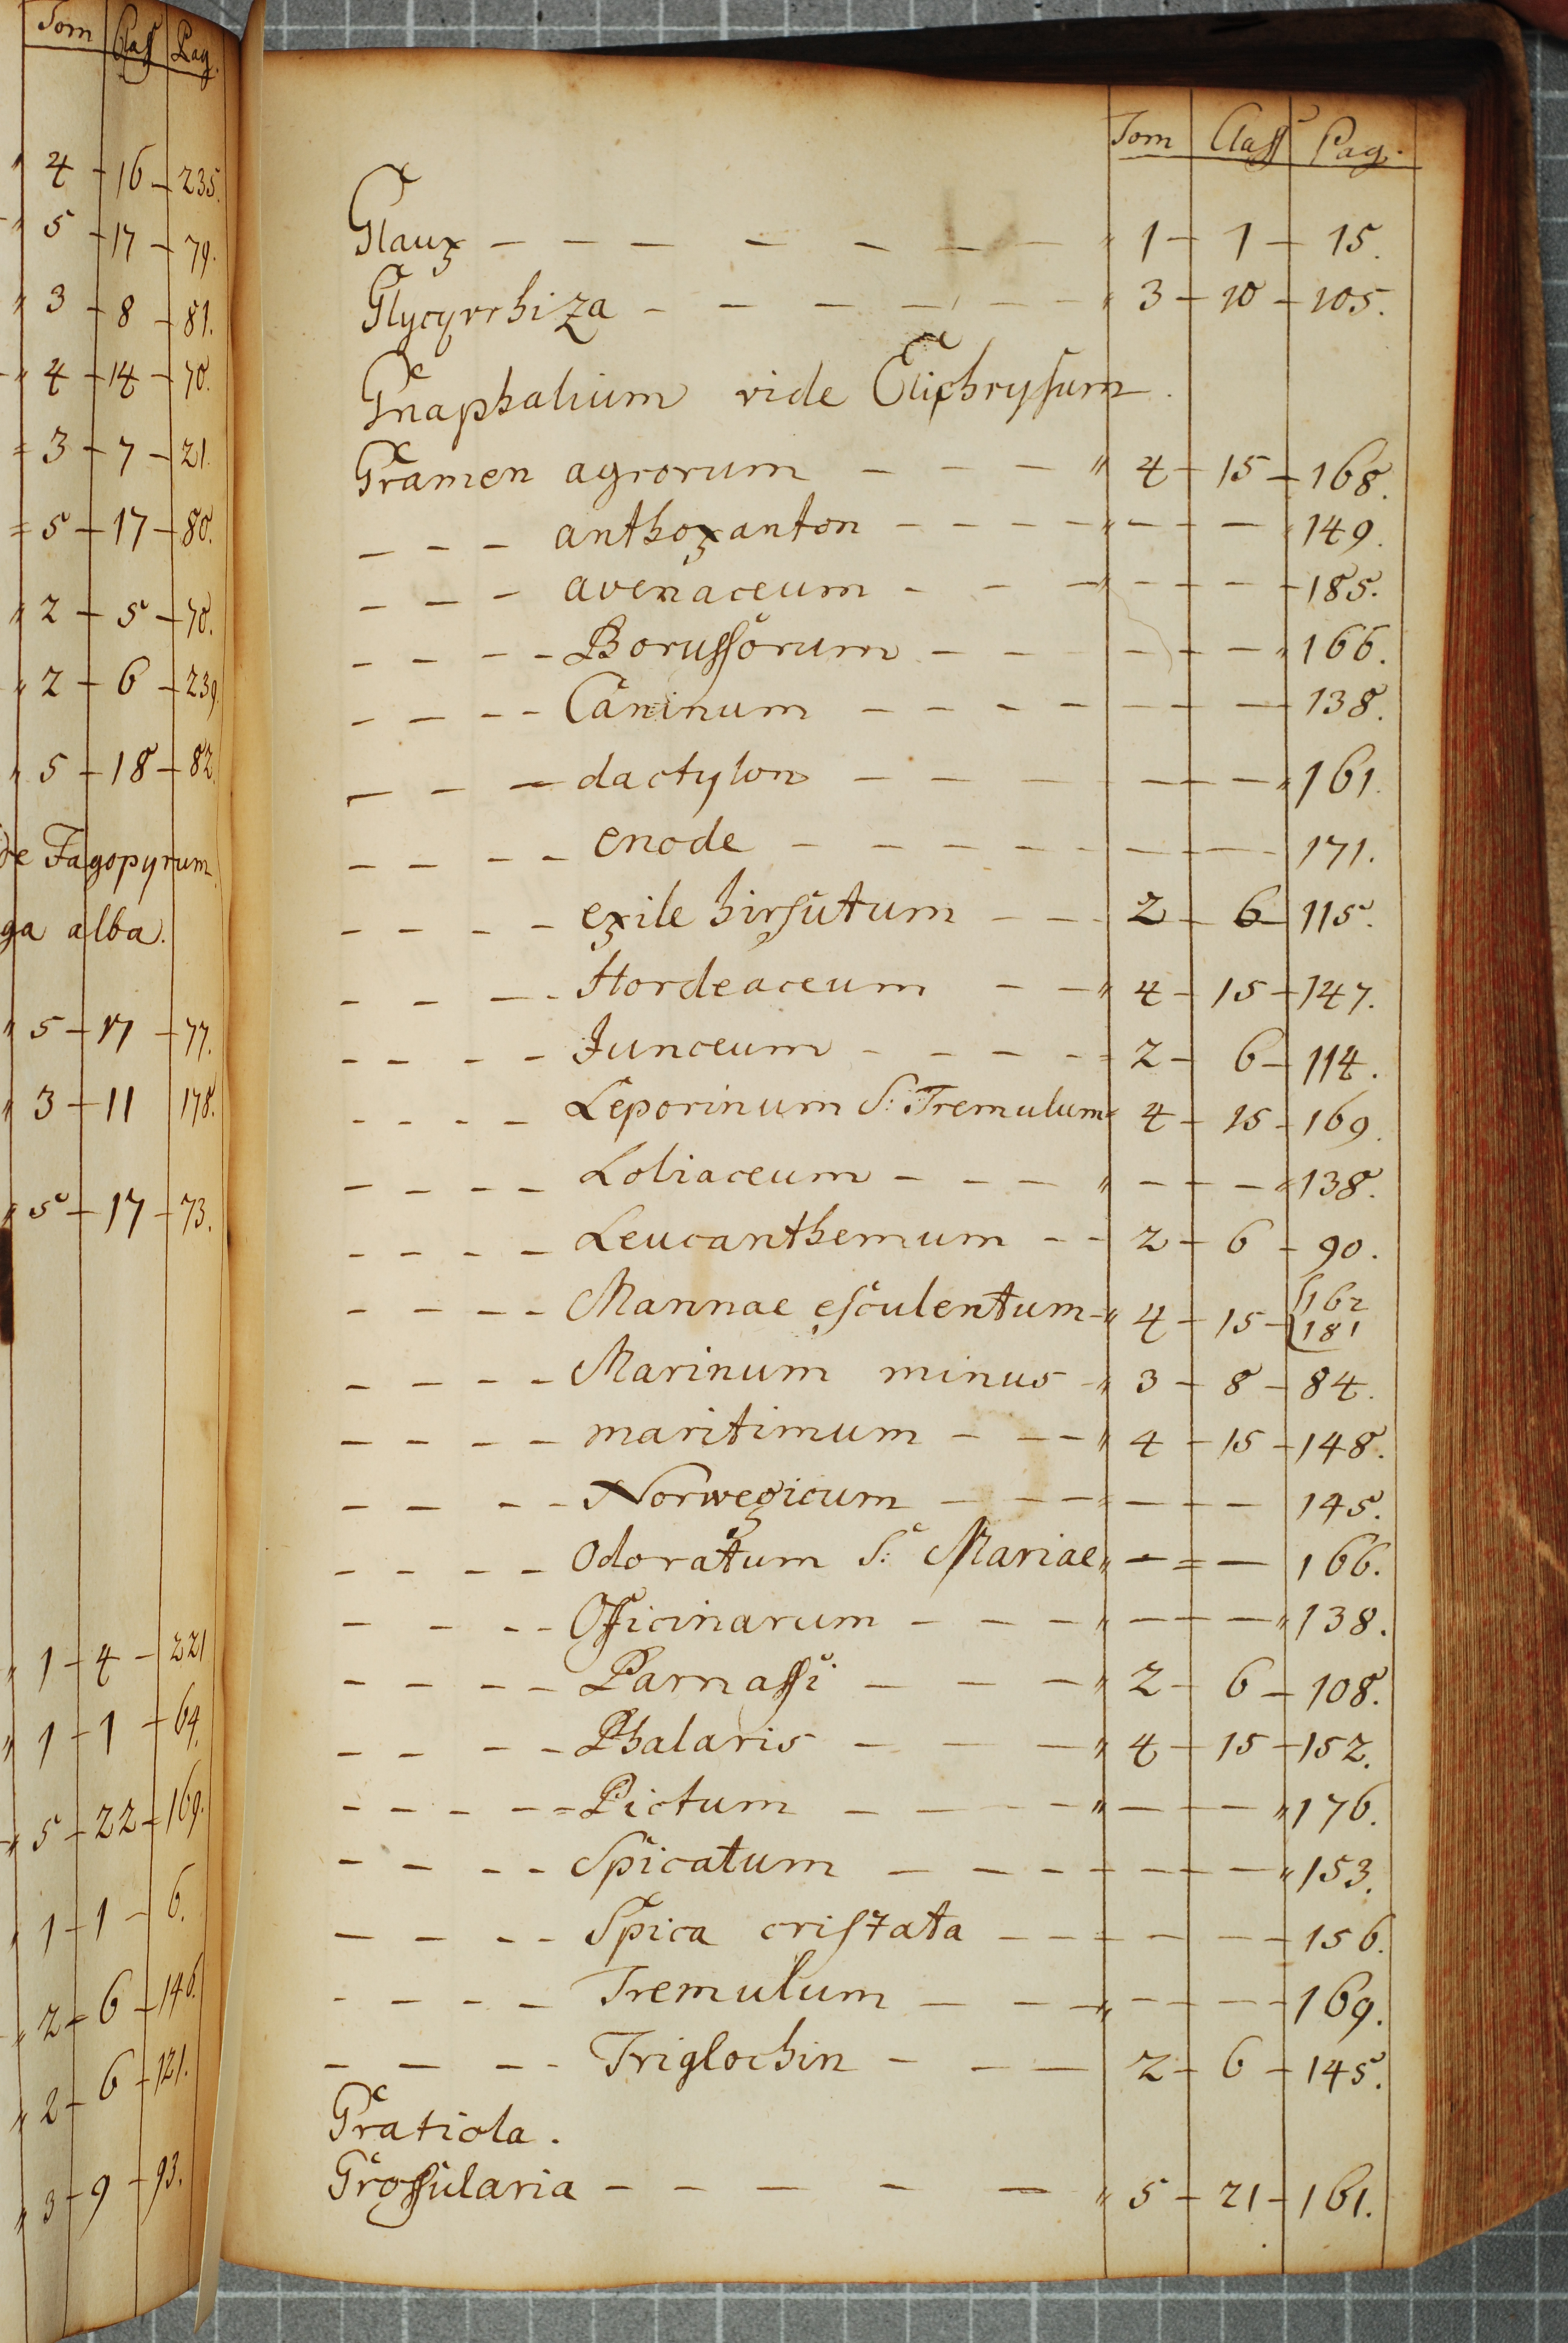 Tom Class Pag.
4 - 16 - 235.
5 - 17 - 79.
3 - 8 - 81.
4 - 14 - 70.
3 - 7 - 21.
5 - 17 - 80.
2 - 5 - 70.
2 - 6 - 239.
5 - 18 - 82.
de Fagopyrum.
ga alba.
5 - 17 - 77.
3 - 11 178.
5 - 17 - 73.
1 - 4 - 221
1 - 1 - 64.
5 - 22 - 169.
1 - 1 - 6.
2 - 6 - 146.
2 - 6 - 121.
3 - 9 - 93.
Tom Class Pag.
Glaux - - - - - - - " 1 - 1 - 15.
Glycyrrhiza - - - - - - - " 3 - 10 - 105.
Gnaphalium vide Elichrysum.
Gramen agrorum - - - " 4 - 15 - 168.
- - - anthoxanton - - - - " - - - " 149.
- - - avenaceum - - - " - - - - 185.
- - - - Borussorum - - - - - - " 166.
- - - - Caninum - - - - - - - - 138.
- - - dactylon - - - - - - " 161.
- - - - enode - - - - - - - - - 171.
- - - - exile hirsutum - - - 2 - 6 - 115.
- - - - Hordeaceum - - " 4 - 15 - 147.
- - - - Junceum - - - - - 2 - 6 - 114.
- - - - Leporinum S: Tremulum " 4 - 15 - 169.
- - - - Loliaceum - - - - " - - - " 138.
- - - - Leucanthemum - - 2 - 6 - 90.
- - - - Mannae esculentum - " 4 - 15 - { 162
181
- - - - Marinum minus - " 3 - 8 - 84.
- - - - maritimum - - - " 4 - 15 - 148.
- - - - Norwegicum - - - - - - - 145.
- - - - Odoratum S: Mariae " - = - 166.
- - - - Officinarum - - - " - - - " 138.
- - - - Parnassi - - - " 2 - 6 - 108.
- - - - Phalaris - - - " 4 - 15 - 152.
- - - - - Pictum - - - - " - - - " 176.
- - - - Spicatum - - - - - - - - " 153.
- - - - Spica cristata - - - - - - - 156.
- - - - Tremulum - - - " - - - - - 169.
- - - - Triglochin - - - 2 - 6 - 145.
Gratiola.
Grossularia - - - - - " 5 - 21 - 161.